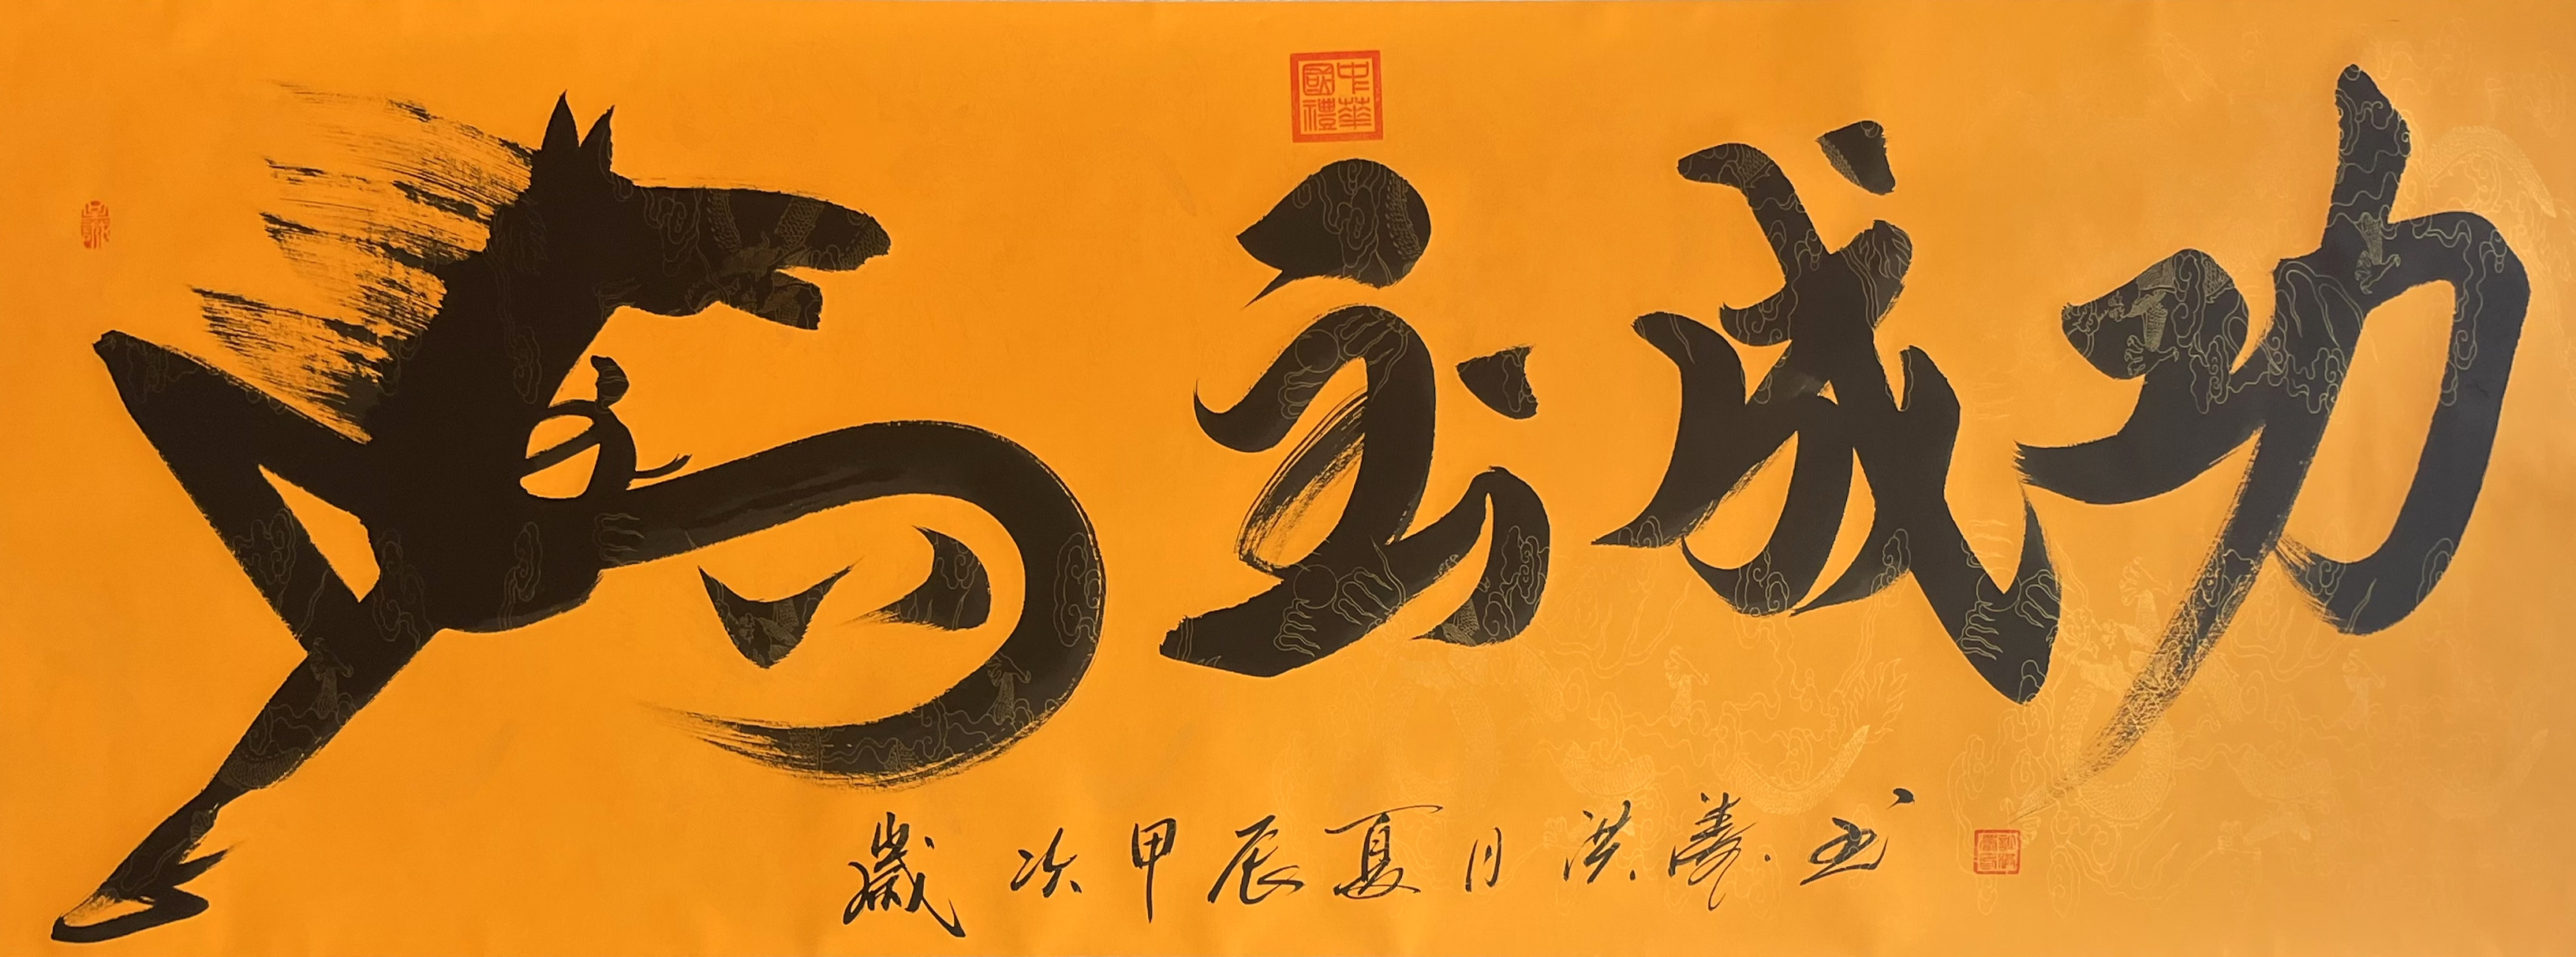 中華國禮
马到成功
歲次甲辰夏月洪 书